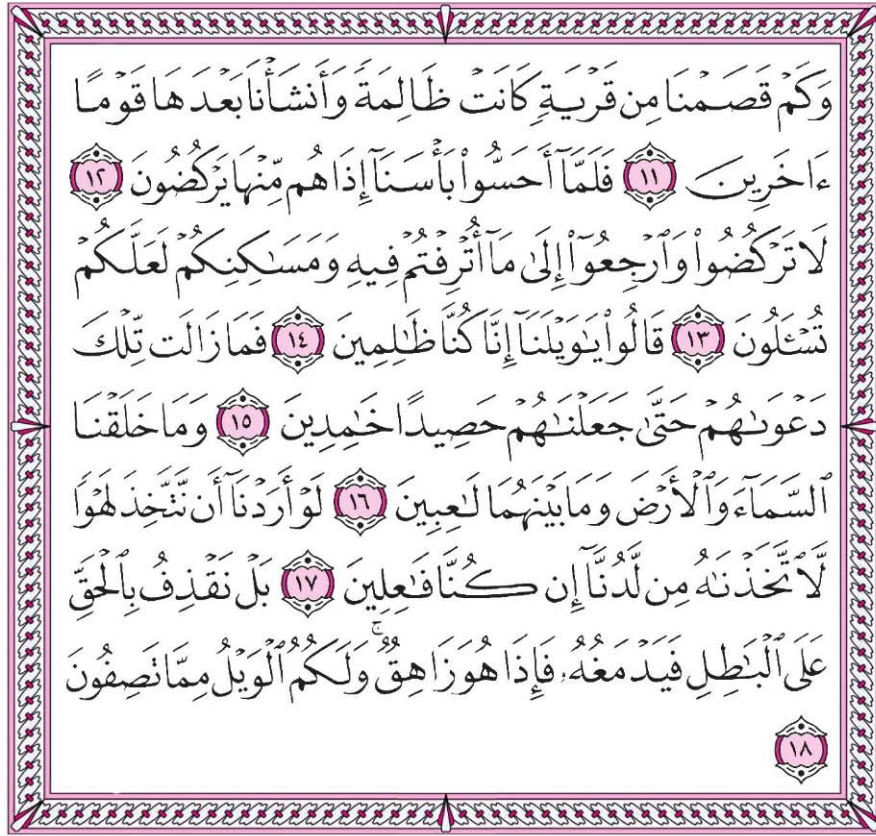 وَكَمْ قَصَمْنَا مِن قَرْيَةٍ كَانَتْ ظَالِمَةً وَأَنشَأْنَا بَعْدَهَا قَوْمًا
ءَاخَرِينَ ١١ فَلَمَّآ أَحَسُّوا۟ بَأْسَنَآ إِذَا هُم مِّنْهَا يَرْكُضُونَ ١٢
لَا تَرْكُضُوا۟ وَٱرْجِعُوٓا۟ إِلَىٰ مَآ أُتْرِفْتُمْ فِيهِ وَمَسَٰكِنِكُمْ لَعَلَّكُمْ
تُسْـَٔلُونَ ١٣ قَالُوا۟ يَٰوَيْلَنَآ إِنَّا كُنَّا ظَٰلِمِينَ ١٤ فَمَا زَالَت تِّلْكَ
دَعْوَىٰهُمْ حَتَّىٰ جَعَلْنَٰهُمْ حَصِيدًا خَٰمِدِينَ ١٥ وَمَا خَلَقْنَا
ٱلسَّمَآءَ وَٱلْأَرْضَ وَمَا بَيْنَهُمَا لَٰعِبِينَ ١٦ لَوْ أَرَدْنَآ أَن نَّتَّخِذَ لَهْوًا
لَّٱتَّخَذْنَٰهُ مِن لَّدُنَّآ إِن كُنَّا فَٰعِلِينَ ١٧ بَلْ نَقْذِفُ بِٱلْحَقِّ
عَلَى ٱلْبَٰطِلِ فَيَدْمَغُهُۥ فَإِذَا هُوَ زَاهِقٌ ۚ وَلَكُمُ ٱلْوَيْلُ مِمَّا تَصِفُونَ
١٨